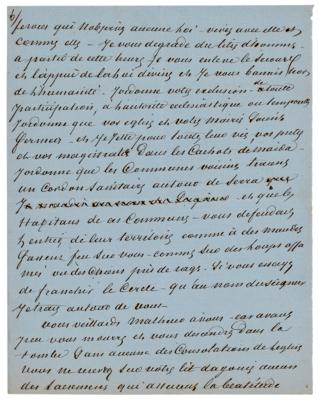 6/
ferons qui n'observe aucune loi - vivez avec elle et
comme elle - Je vous degrade du titre d'hommes -
à partir de cette heure je vous enleve le secours
et l'appui de la loi divine et je vous bannis
de l'humanité. J'ordonne votre exclusion à toute
participation, à l'autorité ecclésiastique ou temporelle
J'ordonne que vos eglises et votre mairie soient
fermées - et je jette pour toute leur vie vos prêtres
et vos magistrats dans les cachots de
J'ordonne que les Communes voisines tracent
un Cordon Sanitaire autour de Serra
et que les
Habitans de ces Communes - vous defendent
l'entrée de leur territoire comme à des maudits
fassent feu sur vous - comme sur des loups affa
més ou des chiens pris de rage. Si vous essayez
de franchir le Cercle qu'au nom du seigneur
Je trace autour de vous -
vous veillards malheur à vous - car avant
peu vous mourrez et vous descendrez dans la
tombe sans aucune des Consolations de l'eglise
vous ne recevrez sur votre lit d'agonie aucun
des Sacremens qui assurent la béatitude